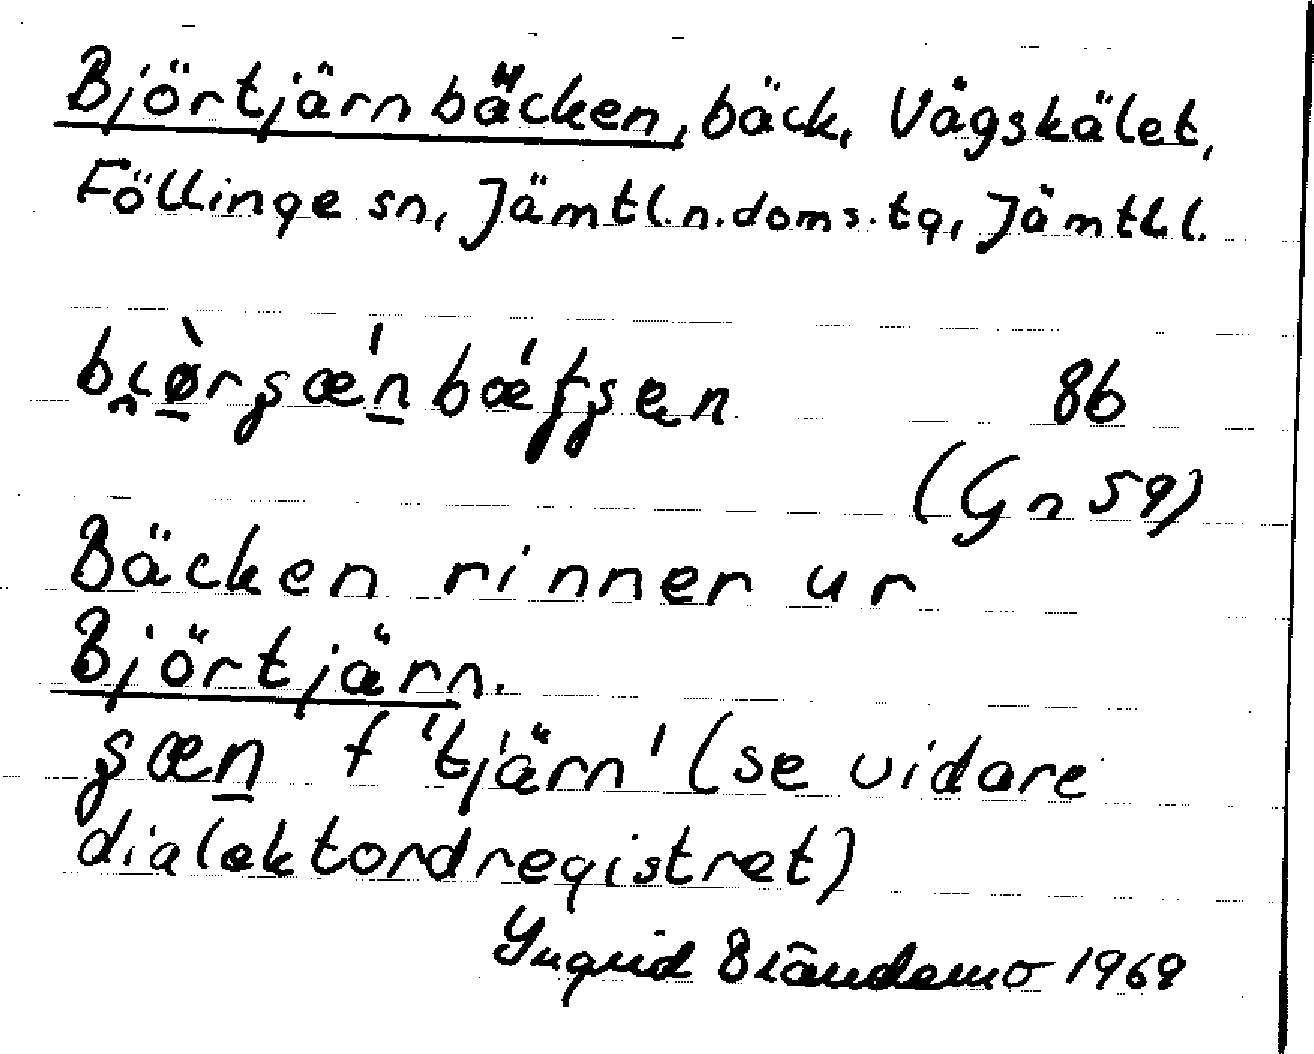 Björtjärnbäcken, bäck, Vågskälet,
Föllinge sn, Jämtl.n.doms.tg, Jämtl.l.
86
(Gn 59)
Bäcken rinner ur
Björtjärn.
f 'tjärn' (se vidare
dialektordregistret)
Ingrid Brändemo 1969